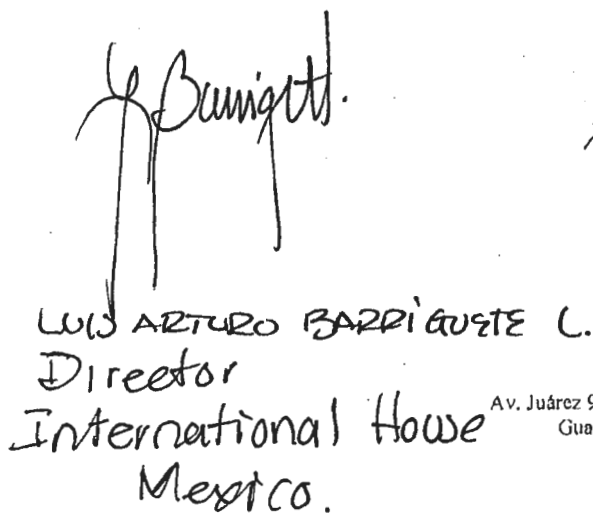 LUIS ARTURO BARRIGUETE C.
Director
International House
Mexico.
Av. Juárez 9
Gua